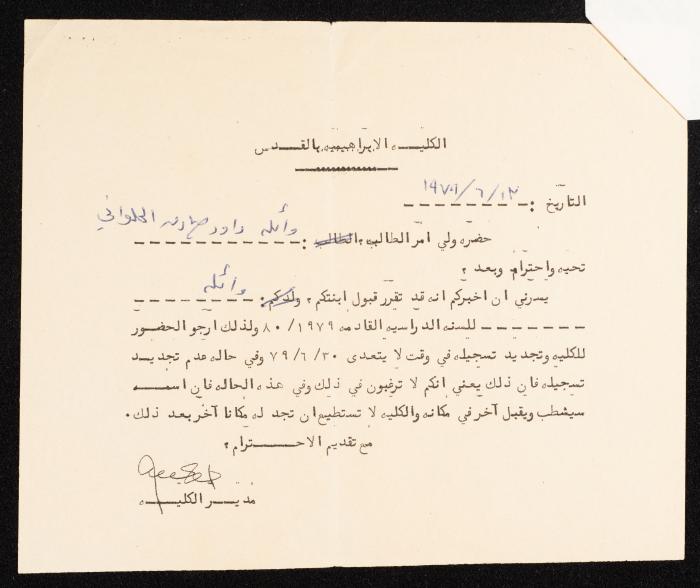 الكليـــه الابراهيميه بالقـــدس
التاريخ : ١٩٧٩/٦/١٣
حضره ولي امر الطالبه ، الطالب : وائله داود الحلواني
تحيه واحترام وبعد ،
يسرني ان اخبركم انه قد تقرر قبول ابنتكم ، ولدكم : وائله
للسنه الدراسيه القادمه ٨٠/١٩٧٩ ولذلك ارجو الحضور
للكليه وتجديد تسجيله في وقت لا يتعدى ٧٩/٦/٣٠ وفي حاله عدم تجديـــد
تسجيله فان ذلك يعني انكم لا ترغبون في ذلك وفي هذه الحاله فان اسمـــه
سيشطب ويقبل آخر في مكانه والكليه لا تستطيع ان تجد له مكانا آخر بعد ذلك .
مع تقديم الاحـــترام ،
مديـــر الكليـــه